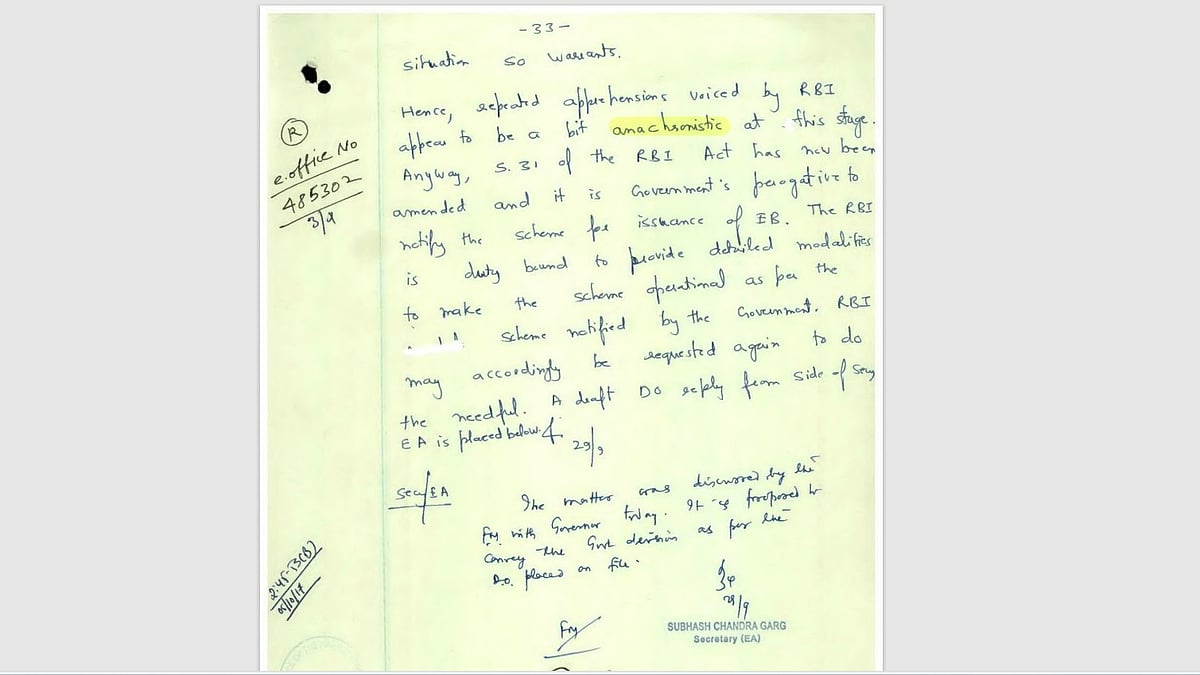 -33-
situation so warrants.
Hence, repeated apprehensions voiced by RBI
appear to be a bit anachronistic at this stage.
Anyway, S. 31 of the RBI Act has now been
amended and it is Government's perogative to
notify the scheme for issuance of EB. The RBI
is duty bound to provide detailed modalities
to make the scheme operational as per the
scheme notified by the Government. RBI
may accordingly be requested again to do
the needful. A draft DO reply from side of Secy
EA is placed below.
29/9
Secy EA
The matter was discussed by the
FM with Governor today. It is proposed to
convey the Govt decision as per the
D.O. placed on file.
29/9
SUBHASH CHANDRA GARG
Secretary (EA)
FM
R
e.office No
485302
3/9
05/10/17